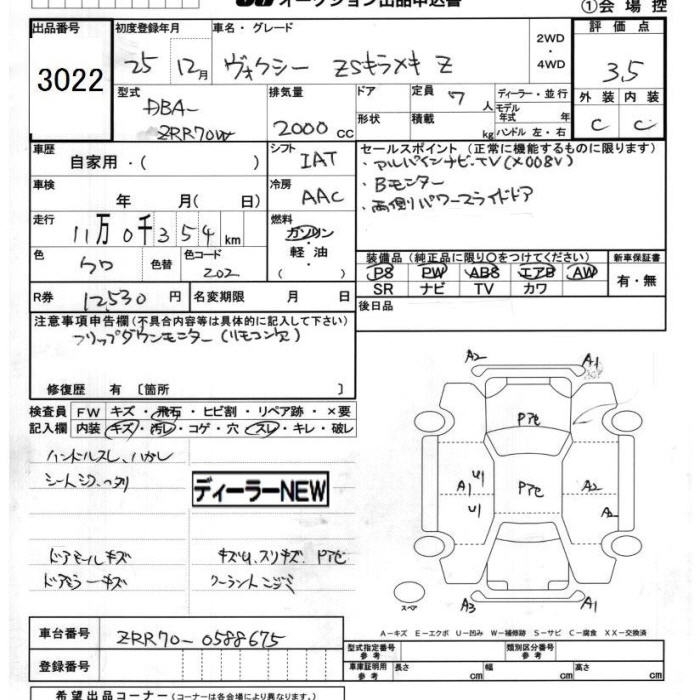 オークション出品申込書
①会場控
出品番号 初度登録年月 車名・グレード 評価点
3022 25 12月 ヴォクシー ZSキラメキ Z 2WD・4WD 3.5
型式 排気量 ドア 定員 ディーラー・並行 外装 内装
DBA- 7人 モデル年式 年 C C
ZRR70W 2000cc 形状 積載 kg ハンドル 左・右
車歴 シフト セールスポイント(正常に機能するものに限ります)
自家用・( ) IAT ・アルパインナビ・TV(X008V)
車検 冷房 ・Bモニター
年 月( 日) AAC ・両側パワースライドドア
走行 燃料
11万0千354km ガソリン・軽油・
色 色替 色コード 装備品(純正品に限り○をつけてください) 新車保証書
クロ 202 PS PW ABS エアB AW 有・無
SR ナビ TV カワ
R券 12,530円 名変期限 月 日 後日品
注意事項申告欄(不具合内容等は具体的に記入して下さい)
フリップダウンモニター(リモコン欠)
修復歴 有〔箇所 〕
検査員 FW キズ・飛石・ヒビ割・リペア跡・×要
記入欄 内装 キズ・汚レ・コゲ・穴・スレ・キレ・破レ
ハンドルスレ、ハガレ
シートシワ、ヘタリ
ディーラーNEW
ドアモールキズ キズU、スリキズ、Pアセ
ドアミラーキズ クーラントニジミ
A2 A1
Pアセ
A1 U1 U1 Pアセ A2 A2
スペア A3 A1
A-キズ E-エクボ U-凹み W-補修跡 S-サビ C-腐食 XX-交換済
車台番号 ZRR70-0588675
型式指定番号 参考 類別区分番号 参考
登録番号
車庫証明用 参考 長さ cm 幅 cm 高さ cm
希望出品コーナー(コーナーは各会場により異なります。)